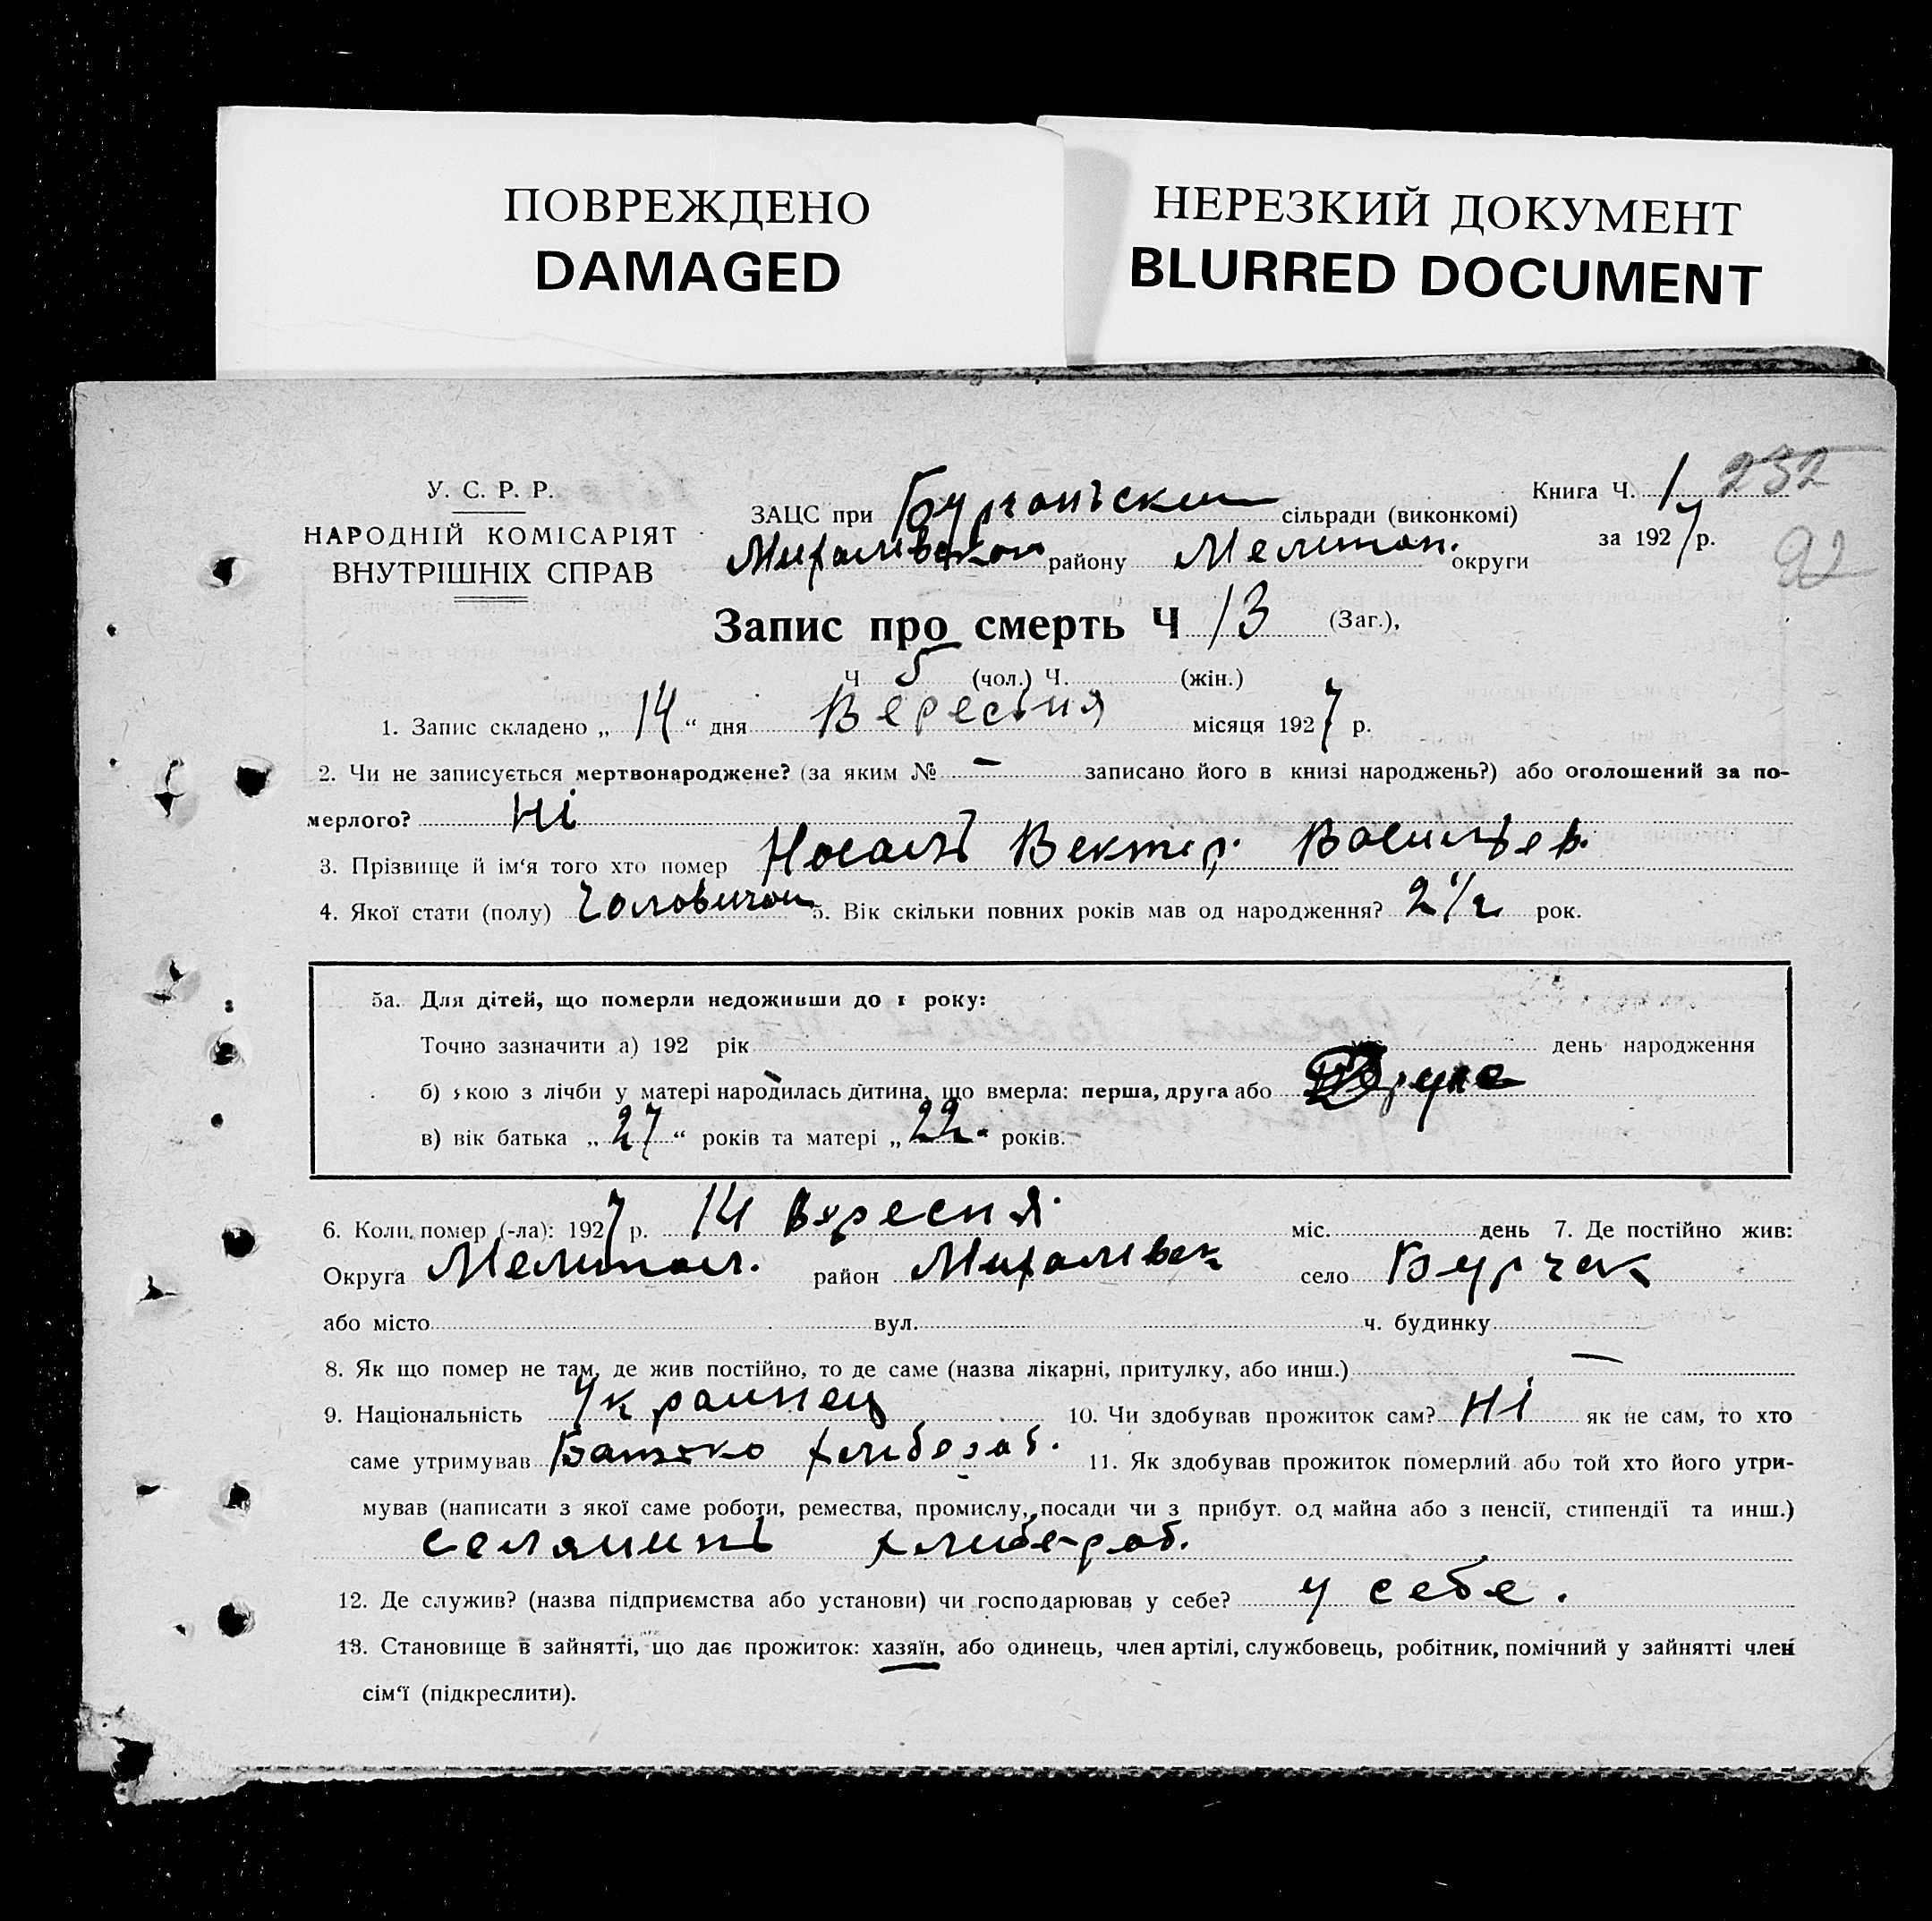 ПОВРЕЖДЕНО
DAMAGED
НЕРЕЗКИЙ ДОКУМЕНТ
BLURRED DOCUMENT
У. С. Р. Р.
НАРОДНІЙ КОМІСАРІЯТ
ВНУТРІШНІХ СПРАВ
Книга Ч. 1 232
ЗАЦС при сільради (виконкомі)
за 1927 р.
92
району Мелитоп. округи
Запис про смерть Ч 13 (Заг.),
Ч 5 (чол.) Ч. (жін.)
1. Запис складено „ 14 “ дня Вересня місяця 1927 р.
2. Чи не записується мертвонароджене? (за яким № — записано його в книзі народжень?) або оголошений за по-
мерлого? Ні
3. Прізвище й ім‘я того хто помер Носаль Вектер. Васильев.
4. Якої стати (полу) 5. Вік скільки повних років мав од народження? 2 1/2 рок.
5а. Для дітей, що померли недоживши до 1 року:
Точно зазначити а) 192 рік міс. день народження
б) якою з лічби у матері народилась дитина, що вмерла: перша, друга або друга
в) вік батька „ 27 “ років та матері „ 22 “ років.
6. Коли помер (-ла): 1927 р. 14 вересня міс. день 7. Де постійно жив:
Округа Мелитоп. район село Бурчак
або місто вул. ч. будинку
8. Як що помер не там, де жив постійно, то де саме (назва лікарні, притулку, або инш.) —
9. Національність Украинец 10. Чи здобував прожиток сам? Ні як не сам, то хто
саме утримував Батько хлибораб. 11. Як здобував прожиток померлий або той хто його утри-
мував (написати з якої саме роботи, ремества, промислу, посади чи з прибут. од майна або з пенсії, стипендії та инш.)
селянинь хлибораб.
12. Де служив? (назва підприємства або установи) чи господарював у себе? у себе.
13. Становище в зайнятті, що дає прожиток: хазяїн, або одинець, член артілі, службовець, робітник, помічний у зайнятті член
сім‘ї (підкреслити).